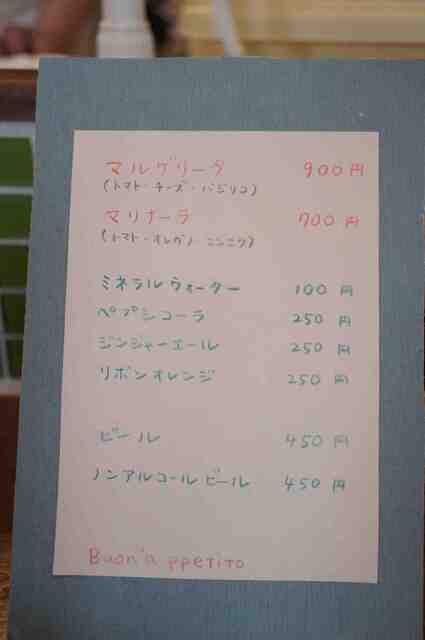 マルゲリータ 900円
(トマト・チーズ・バジリコ)
マリナーラ 700円
(トマト・オレガノ ニンニク)
ミネラルウォーター 100円
ペプシコーラ 250円
ジンジャーエール 250円
リボンオレンジ 250円
ビール 450円
ノンアルコールビール 450円
Buon'a ppetito